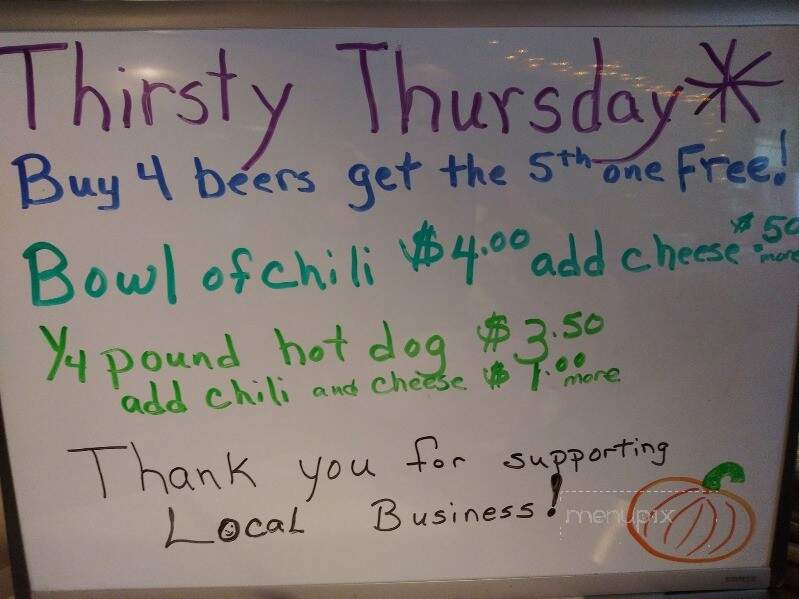 Thirsty Thursday*
Buy 4 beers get the 5th one Free!
Bowl of chili $4.00 add cheese $.50 more
1/4 pound hot dog $3.50
add chili and cheese $1.00 more
Thank you for supporting
Local Business!
menupix